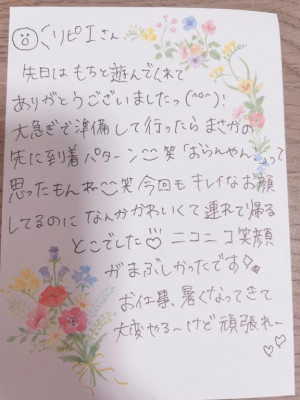 リピエさん
先日はもちと遊んでくれて
ありがとうございましたっ(^o^)!
大急ぎで準備して行ったらまさかの
先に到着パターン笑「おらんやん」って
思ったもんねー笑 今回もキレイなお顔
してるのになんかかわいくて連れて帰る
とこでした♡ ニコニコ笑顔
がまぶしかったです!
お仕事、暑くなってきて
大変やろ〜けど頑張れ〜
♡♡